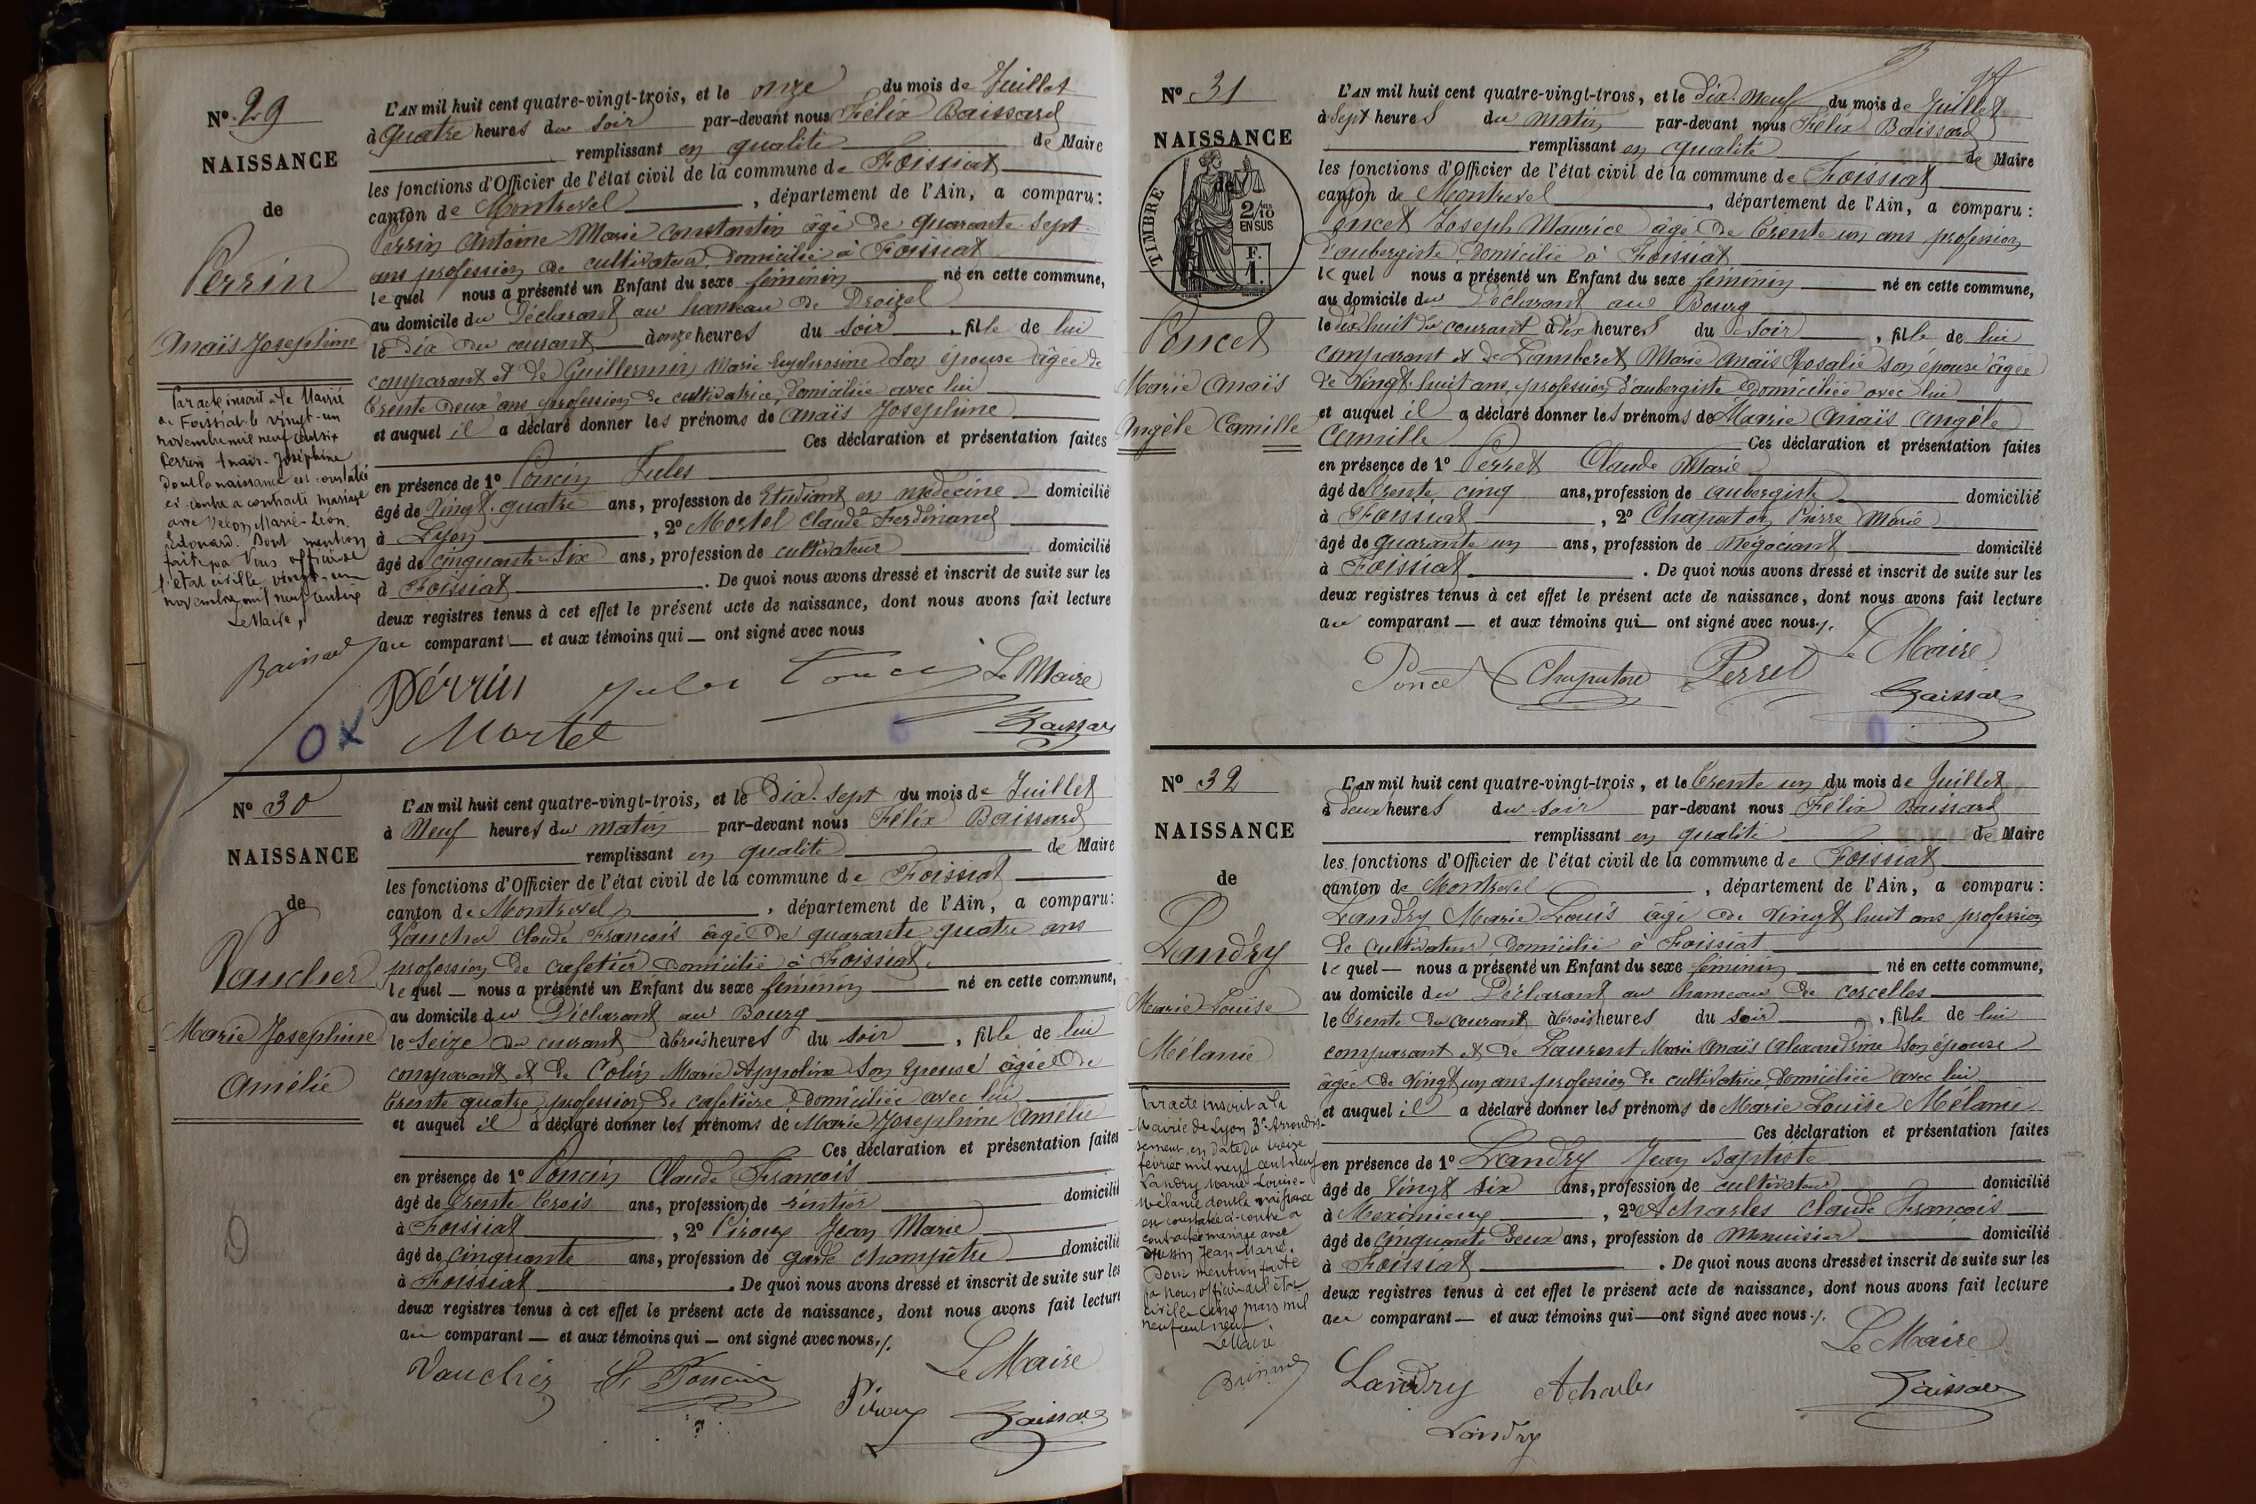 N° 29
NAISSANCE
de
Perrin
Anaïs Joséphine
Par acte inscrit à la Mairie
de Foissiat le vingt-un
novembre mil neuf cent six
Perrin Anaïs-Joséphine
dont la naissance est constatée
ci-contre a contracté mariage
avec Velon Marie-Léon
Edouard. Dont mention
faite par Nous officier de
l'état civil le vingt-un
novembre mil neuf cent six
Le Maire,
Baissard
L'AN mil huit cent quatre-vingt-trois, et le onze du mois de Juillet
à quatre heures du soir par-devant nous Félix Baissard
remplissant en qualité de Maire
les fonctions d'Officier de l'état civil de la commune de Foissiat
canton de Montrevel, département de l'Ain, a comparu :
Perrin Antoine Marie Constantin âgé de quarante sept
ans profession de cultivateur, domicilié à Foissiat
lequel nous a présenté un Enfant du sexe féminin né en cette commune,
au domicile du Déclarant au hameau de Droizel
le dix du courant à onze heures du soir, fille de lui
comparant et de Guillermin Marie Euphrosine son épouse âgée de
trente deux ans profession de cultivatrice, domiciliée avec lui
et auquel il a déclaré donner les prénoms de Anaïs Joséphine
Ces déclaration et présentation faites
en présence de 1° Poncin Jules
âgé de vingt-quatre ans, profession de Etudiant en médecine domicilié
à Lyon, 2° Mortel Claude Ferdinand
âgé de cinquante-six ans, profession de cultivateur domicilié
à Foissiat. De quoi nous avons dressé et inscrit de suite sur les
deux registres tenus à cet effet le présent acte de naissance, dont nous avons fait lecture
au comparant — et aux témoins qui — ont signé avec nous
Perrin Jules Poncin Le Maire
Mortel Baissard
N° 30
NAISSANCE
de
Vaucher
Marie Joséphine
Amélie
L'AN mil huit cent quatre-vingt-trois, et le Dix-sept du mois de Juillet
à Neuf heures du matin par-devant nous Félix Baissard
remplissant en qualité de Maire
les fonctions d'Officier de l'état civil de la commune de Foissiat
canton de Montrevel, département de l'Ain, a comparu :
Vaucher Claude François âgé de quarante quatre ans
profession de cafetier domicilié à Foissiat
lequel — nous a présenté un Enfant du sexe féminin né en cette commune,
au domicile du Déclarant au Bourg
le seize du courant à trois heures du soir, fille de lui
comparant et de Colin Marie Appoline son épouse âgée de
trente quatre, profession de cafetière, domiciliée avec lui
et auquel il a déclaré donner les prénoms de Marie Joséphine Amélie
Ces déclaration et présentation faites
en présence de 1° Poncin Claude François
âgé de trente trois ans, profession de rentier domicilié
à Foissiat, 2° Piroux Jean Marie
âgé de cinquante ans, profession de garde champêtre domicilié
à Foissiat. De quoi nous avons dressé et inscrit de suite sur les
deux registres tenus à cet effet le présent acte de naissance, dont nous avons fait lecture
au comparant — et aux témoins qui — ont signé avec nous ./.
Vaucher Poncin Le Maire
Piroux Baissard
N° 31
NAISSANCE
de
TIMBRE
2/10
EN SUS
F.
1.
Poncet
Marie Anaïs
Angèle Camille
L'AN mil huit cent quatre-vingt-trois, et le Dix-neuf du mois de Juillet
à Sept heures du matin par-devant nous Félix Baissard
remplissant en qualité de Maire
les fonctions d'Officier de l'état civil de la commune de Foissiat
canton de Montrevel, département de l'Ain, a comparu :
Poncet Joseph Maurice âgé de trente un ans profession
d'aubergiste domicilié à Foissiat
lequel nous a présenté un Enfant du sexe féminin né en cette commune,
au domicile du Déclarant au Bourg
le dix huit du courant à dix heures du soir, fille de lui
comparant et de Lamberet Marie Anaïs Rosalie son épouse âgée
de vingt-huit ans, profession d'aubergiste domiciliée avec lui
et auquel il a déclaré donner les prénoms de Marie Anaïs Angèle
Camille Ces déclaration et présentation faites
en présence de 1° Perret Claude Marie
âgé de trente cinq ans, profession de aubergiste domicilié
à Foissiat, 2° Chapaton Pierre Marie
âgé de quarante un ans, profession de Négociant domicilié
à Foissiat. De quoi nous avons dressé et inscrit de suite sur les
deux registres tenus à cet effet le présent acte de naissance, dont nous avons fait lecture
au comparant — et aux témoins qui — ont signé avec nous ./.
Le Maire
Poncet Chapaton Perret
Baissard
N° 32
NAISSANCE
de
Landry
Marie Louise
Mélanie
Par acte inscrit à la
Mairie de Lyon 3e Arrondis-
sement en date du treize
février mil neuf cent neuf
Landry Marie Louise-
Mélanie dont la naissance
est constatée ci-contre a
contracté mariage avec
Jean-Marie.
Dont mention faite
par Nous officier de l'état
civil le cinq mars mil
neuf cent neuf
Le Maire
Baissard
L'AN mil huit cent quatre-vingt-trois, et le trente un du mois de Juillet
à deux heures du soir par-devant nous Félix Baissard
remplissant en qualité de Maire
les fonctions d'Officier de l'état civil de la commune de Foissiat
canton de Montrevel, département de l'Ain, a comparu :
Landry Marie Louis âgé de vingt huit ans profession
de cultivateur, domicilié à Foissiat
lequel — nous a présenté un Enfant du sexe féminin né en cette commune,
au domicile du Déclarant au hameau de corcelles
le trente du courant à trois heures du soir, fille de lui
comparant et de Laurent Marie Anaïs Alexandrine son épouse
âgée de vingt un ans profession de cultivatrice, domiciliée avec lui
et auquel il a déclaré donner les prénoms de Marie Louise Mélanie
Ces déclaration et présentation faites
en présence de 1° Landry Jean Baptiste
âgé de vingt six ans, profession de cultivateur domicilié
à Meximieux, 2° Acharles Claude François
âgé de cinquante deux ans, profession de menuisier domicilié
à Foissiat. De quoi nous avons dressé et inscrit de suite sur les
deux registres tenus à cet effet le présent acte de naissance, dont nous avons fait lecture
au comparant — et aux témoins qui — ont signé avec nous ./.
Le Maire
Landry Acharles Baissard
Landry